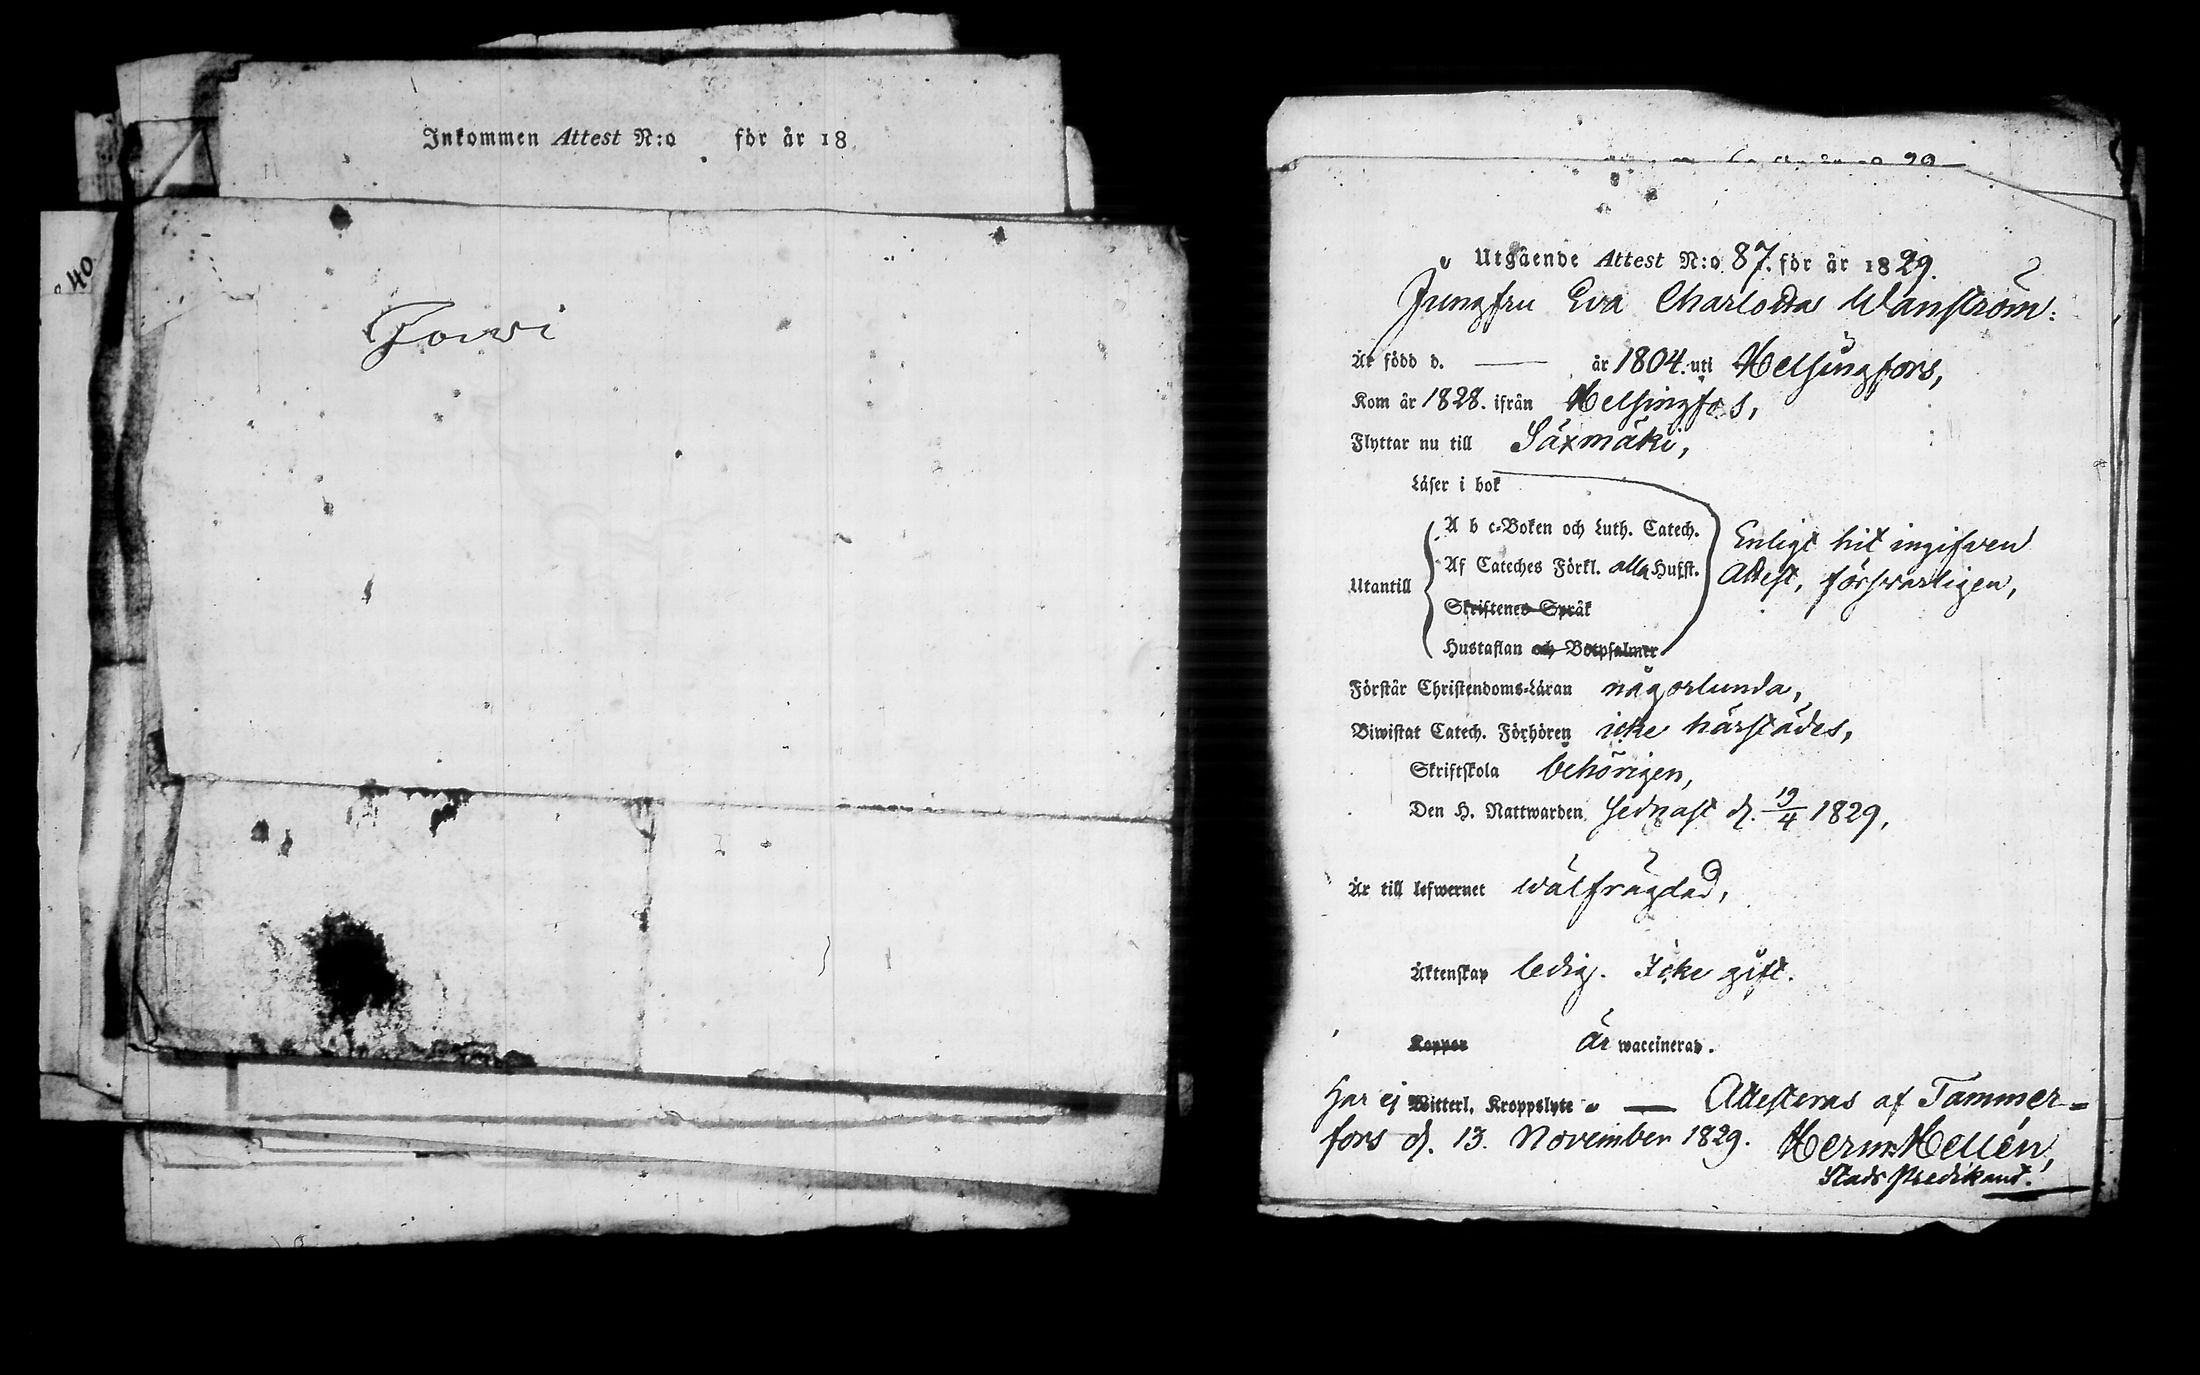 Inkommen Attest N:o för år 18
40
Utgående Attest N:o 87. för år 1829.
Jungfru Eva Charlotta Wanström.
Är född d. — år 1804. uti Helsingfors,
Kom år 1828. ifrån Helsingfors,
Flyttar nu till Säxmäki,
Läser i bok
A b c-Boken och Luth. Catech.
Enligt hit ingifven
Utantill
Af Cateches Förkl. alla Hufst.
Attest, försvarligen,
Skriftenes Språk
Hustaflan och Botpsalmer
Förstår Christendoms-Läran någorlunda,
Biwistat Catech. Förhören icke härstädes,
Skriftskola behörigen,
Den H. Nattwarden sednast d. 19/4 1829,
Är till lefwernet wälfrägdad,
Äktenskap ledig. Icke gift.
Koppor Är waccinerad.
Har ej Witterl. Kroppslyte — Attesteras af Tammer=
fors d. 13. November 1829. Herm. Hellén,
Stads Predikant.